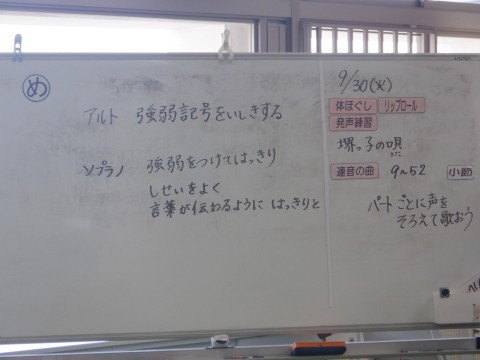 め
アルト 強弱記号をいしきする
ソプラノ 強弱をつけてはっきり
しせいをよく
言葉が伝わるように はっきりと
9/30(火)
体ほぐし リップロール
発声練習
堺っ子の唄
うた
連音の曲 9~52 小節
パートごとに声を
そろえて歌おう